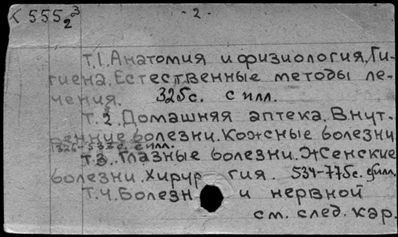 К 555₂³
- 2 -
Т.1. Анатомия и физиология. Ги-
гиена. Естественные методы ле-
чения. 325с. с илл.
Т.2. Домашняя аптека. Внут-
ренние болезни. Кожсные болезни
326-532с. с илл.
Т.3. Глазные болезни. Женские
болезни. Хирургия. 534-775с. с илл.
Т.4. Болезн и нервной
см. след. кар.